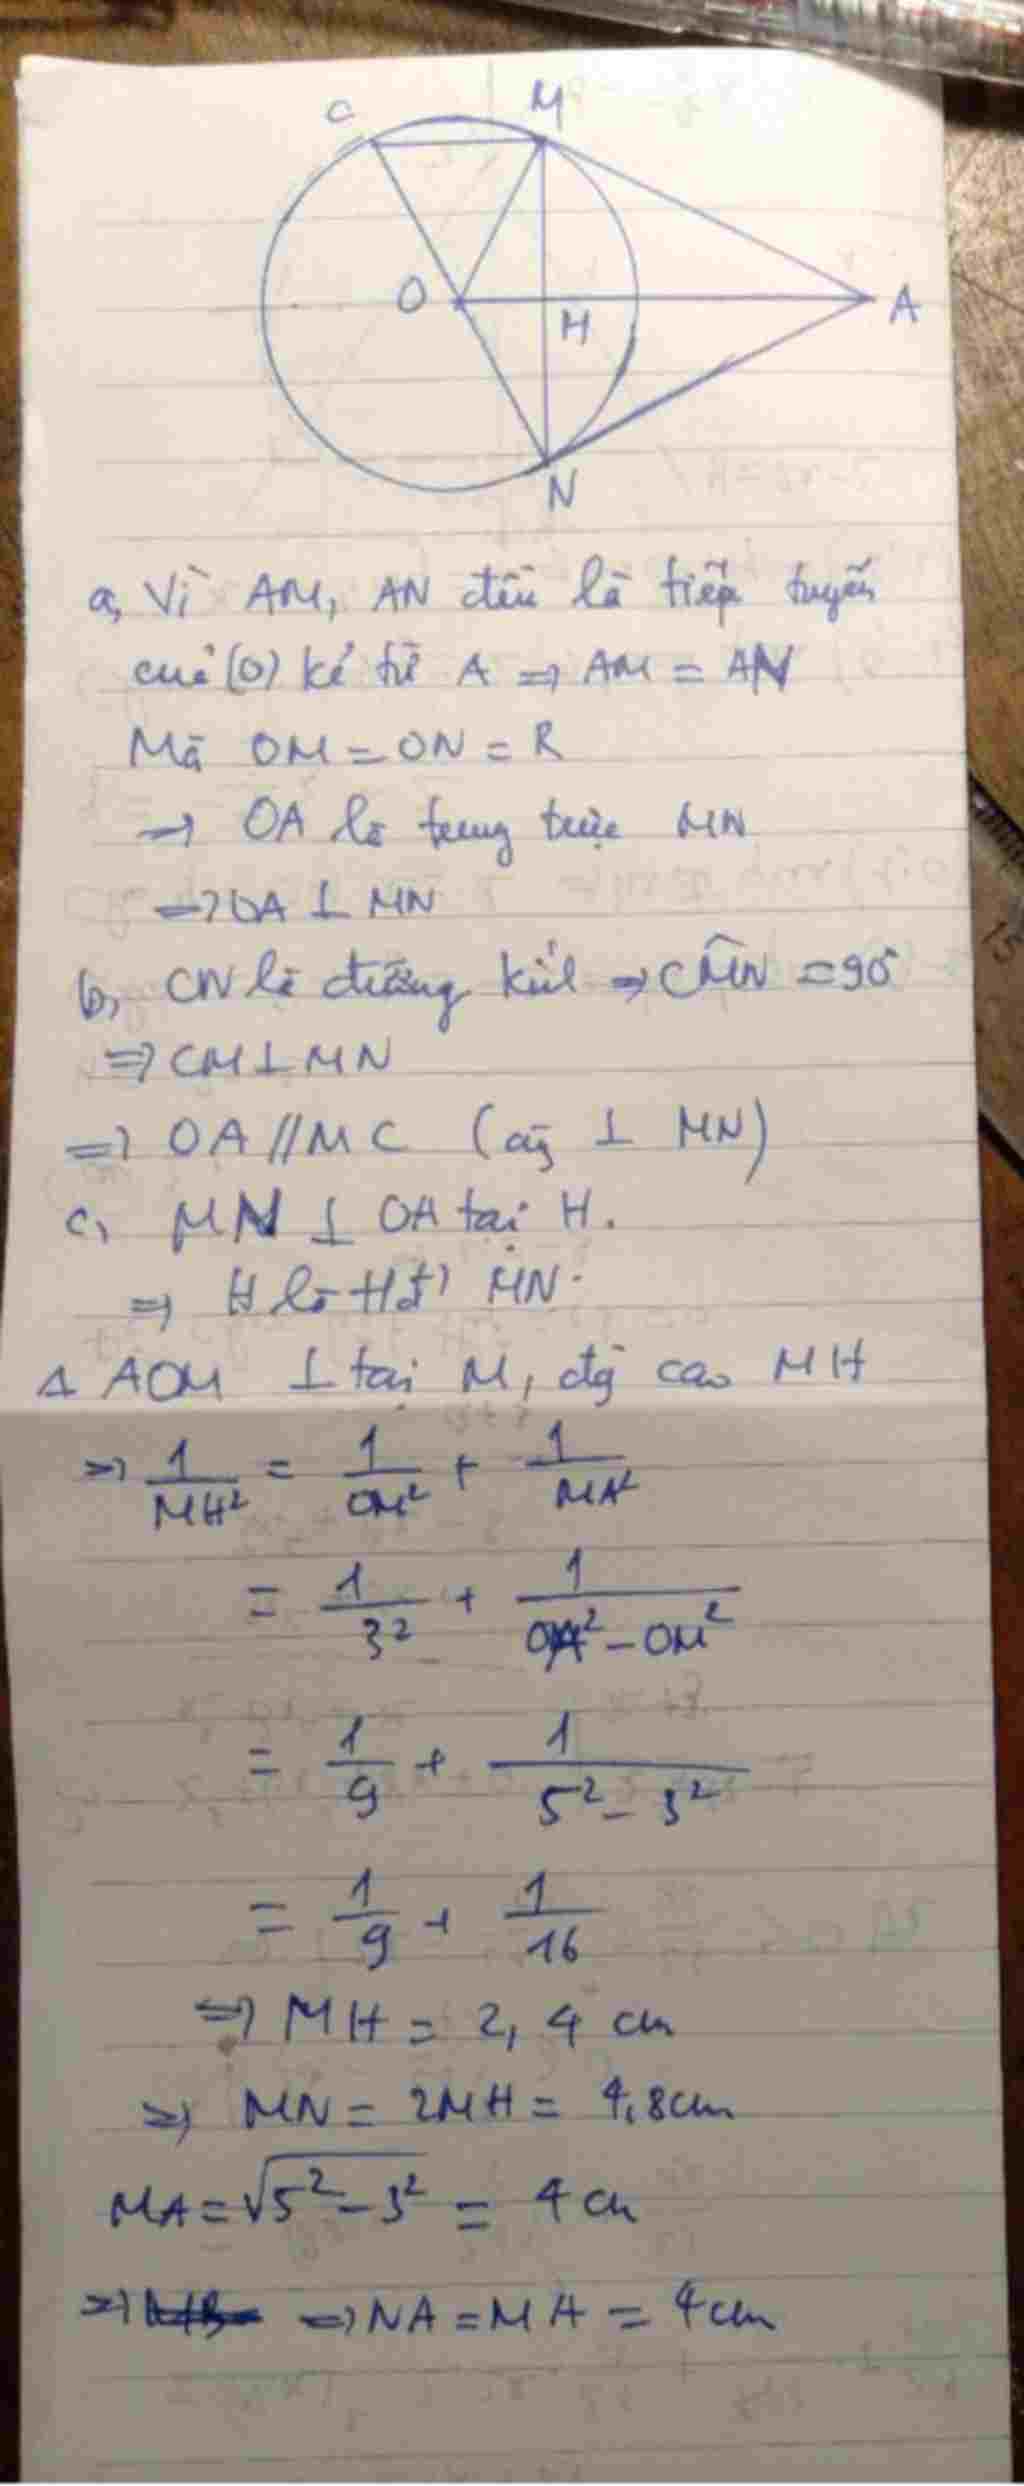 C
M
O
H
A
N
a, Vì AM, AN đều là tiếp tuyến
của (O) kẻ từ A => AM = AN
Mà OM = ON = R
=> OA là trung trực MN
=> OA ⊥ MN
b, CN là đường kính => CM̂N = 90°
=> CM ⊥ MN
=> OA // MC (cùng ⊥ MN)
c, MN ⊥ OA tại H.
=> H là trđ MN.
Δ AOM ⊥ tại M, đg cao MH
=> 1/MH² = 1/OM² + 1/MA²
= 1/3² + 1/(OA² - OM²)
= 1/9 + 1/(5² - 3²)
= 1/9 + 1/16
=> MH = 2,4 cm
=> MN = 2MH = 4,8cm
MA = √(5² - 3²) = 4 cm
=> => NA = MA = 4cm
15